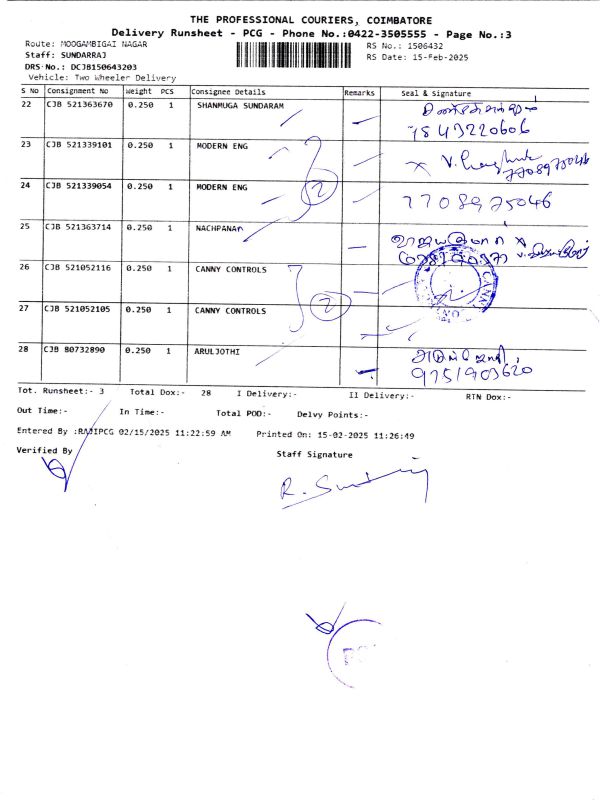 THE PROFESSIONAL COURIERS, COIMBATORE
Delivery Runsheet - PCG - Phone No.:0422-3505555 - Page No.:3
Route: MOOGAMBIGAI NAGAR RS No.: 1506432
Staff: SUNDARRAJ RS Date: 15-Feb-2025
DRS No.: DCJB150643203
Vehicle: Two Wheeler Delivery
S No Consignment No Weight PCS Consignee Details Remarks Seal & Signature
22 CJB 521363670 0.250 1 SHANMUGA SUNDARAM
7543220606
23 CJB 521339101 0.250 1 MODERN ENG
7708975046
24 CJB 521339054 0.250 1 MODERN ENG 2 7708975046
25 CJB 521363714 0.250 1 NACHPANAR
26 CJB 521052116 0.250 1 CANNY CONTROLS
2 CANN
27 CJB 521052105 0.250 1 CANNY CONTROLS
28 CJB 80732890 0.250 1 ARULJOTHI
9751903620
Tot. Runsheet:- 3 Total Dox:- 28 I Delivery:- II Delivery:- RTN Dox:-
Out Time:- In Time:- Total POD:- Delvy Points:-
Entered By :RAJIPCG 02/15/2025 11:22:59 AM Printed On: 15-02-2025 11:26:49
Verified By Staff Signature